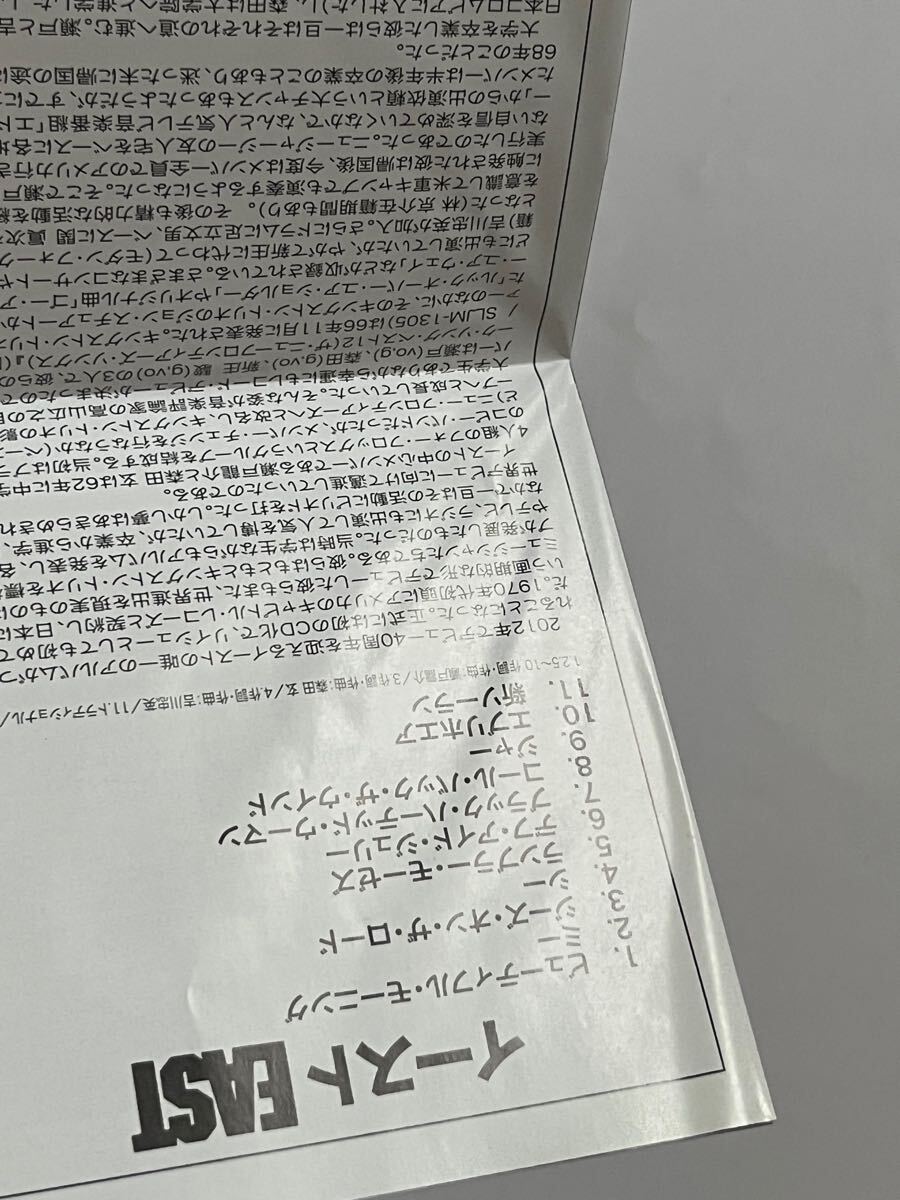 イースト EAST
1. ビューティフル・モーニング
2. ミー
3. ジーズ・オン・ザ・ロード
4. シー
5. ランブラー・モーゼズ
6. デフ・アイド・ジュリー
7. ブラック・ハーテッド・ウーマン
8. コール・バック・ザ・ウインド
9. ジャー
10. エブリホエア
11. 新ソーラン
1.2.5〜10作詞・作曲：瀬戸龍介／3作詞・作曲：森田 玄／4作詞・作曲：吉川忠英／11.トラディショナル／
2012年でデビュー40周年を迎えるイーストの唯一のアルバムがつ
れることになった。正式には初のCD化で、リイシューとしても初めて
だ。1970年代初頭にアメリカのキャピトル・レコーズと契約し、日本に
いう画期的な形でデビューした彼らもまた、世界進出を現実のものに
ミュージシャンたちである。彼らはもともとキングストン・トリオを標
プが発展したものだった。当時は学生ながらもアルバムを発表し、各
やテレビ、ラジオにも出演して人気を博していたが、卒業から進学、
なかで一旦はその活動にピリオドを打った。しかし夢はあきらめされ
世界デビューに向けて邁進していったのである。
イーストの中心メンバーである瀬戸龍介と森田 玄は62年に中学
4人組のフォー・フロッグスというグループを結成する。当初はブラ
のコピー・バンドだったが、メンバー・チェンジを行なうなか（ベース
ど）ニュー・フロンティアーズへと改名し、キングストン・トリオの影
ープへと成長していった。そんな姿が音楽評論家の高山広之の目
大学生でありながら幸運にもレコード・デビューが決まったので
バーは瀬戸(vo,g)、森田(g,vo)、庄 駿(g,vo)の3人で、彼らの
ーク・ソング・ベスト12（ザ・ニュー・フロンティアーズ・ソングス）』（
/ SLJM-1305)は66年11月に発表された。キングストン・トリオ
アーのなかに、そのキングストン・トリオのジョン・スチュアートか
た「ルック・オーバー・ユア・ショルダー」やオリジナル曲「ゴー・ア
ー・ユア・ウェイ」などが収録されている。さまざまなコンサートや
どにも出演していたが、やがて新庄に代わって（モダン・フォーク
籍）吉川忠英が加入。さらにドラムに足立文男、ベースに関 眞次
となった（林 京介在籍期間もあり）。その後も精力的な活動を
を意識して米軍キャンプでも演奏するようになった。そこで瀬戸
に触発された彼は帰国後、今度はメンバー全員でのアメリカ行き
実行したのであった。ニュージャージーの友人宅をベースに各地
ない自信を深めていくなかで、なんと人気テレビ音楽番組「エド
ー」からの出演依頼という大チャンスもあったようだが、すでに
たメンバーは半年後の卒業のこともあり、迷った末に帰国の途に
68年のことだった。
大学を卒業した彼らは一旦はそれぞれの道へ進む。瀬戸と吉
日本コロムビアに入社した）し、森田は大学院へと進学した。し